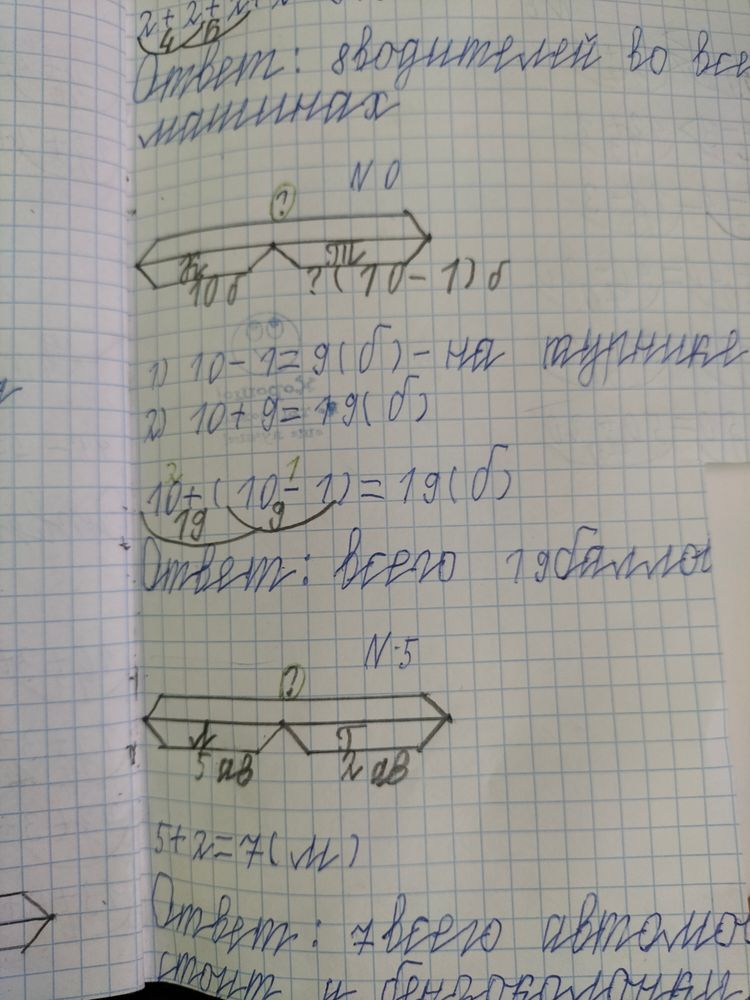 2+2+2
4 6
Ответ: 8 водителей во все
машинах
N 0
?
10 б ? (10-1) б
1) 10-1=9(б)-на турнике
2) 10+9=19(б)
2 1
10+(10-1)=19(б)
19 9
Ответ: всего 19 балло
N 5
?
Л Г
5 ав 2 ав
5+2=7(м)
Ответ: 7 всего автомоб
стоит у бензоколонки